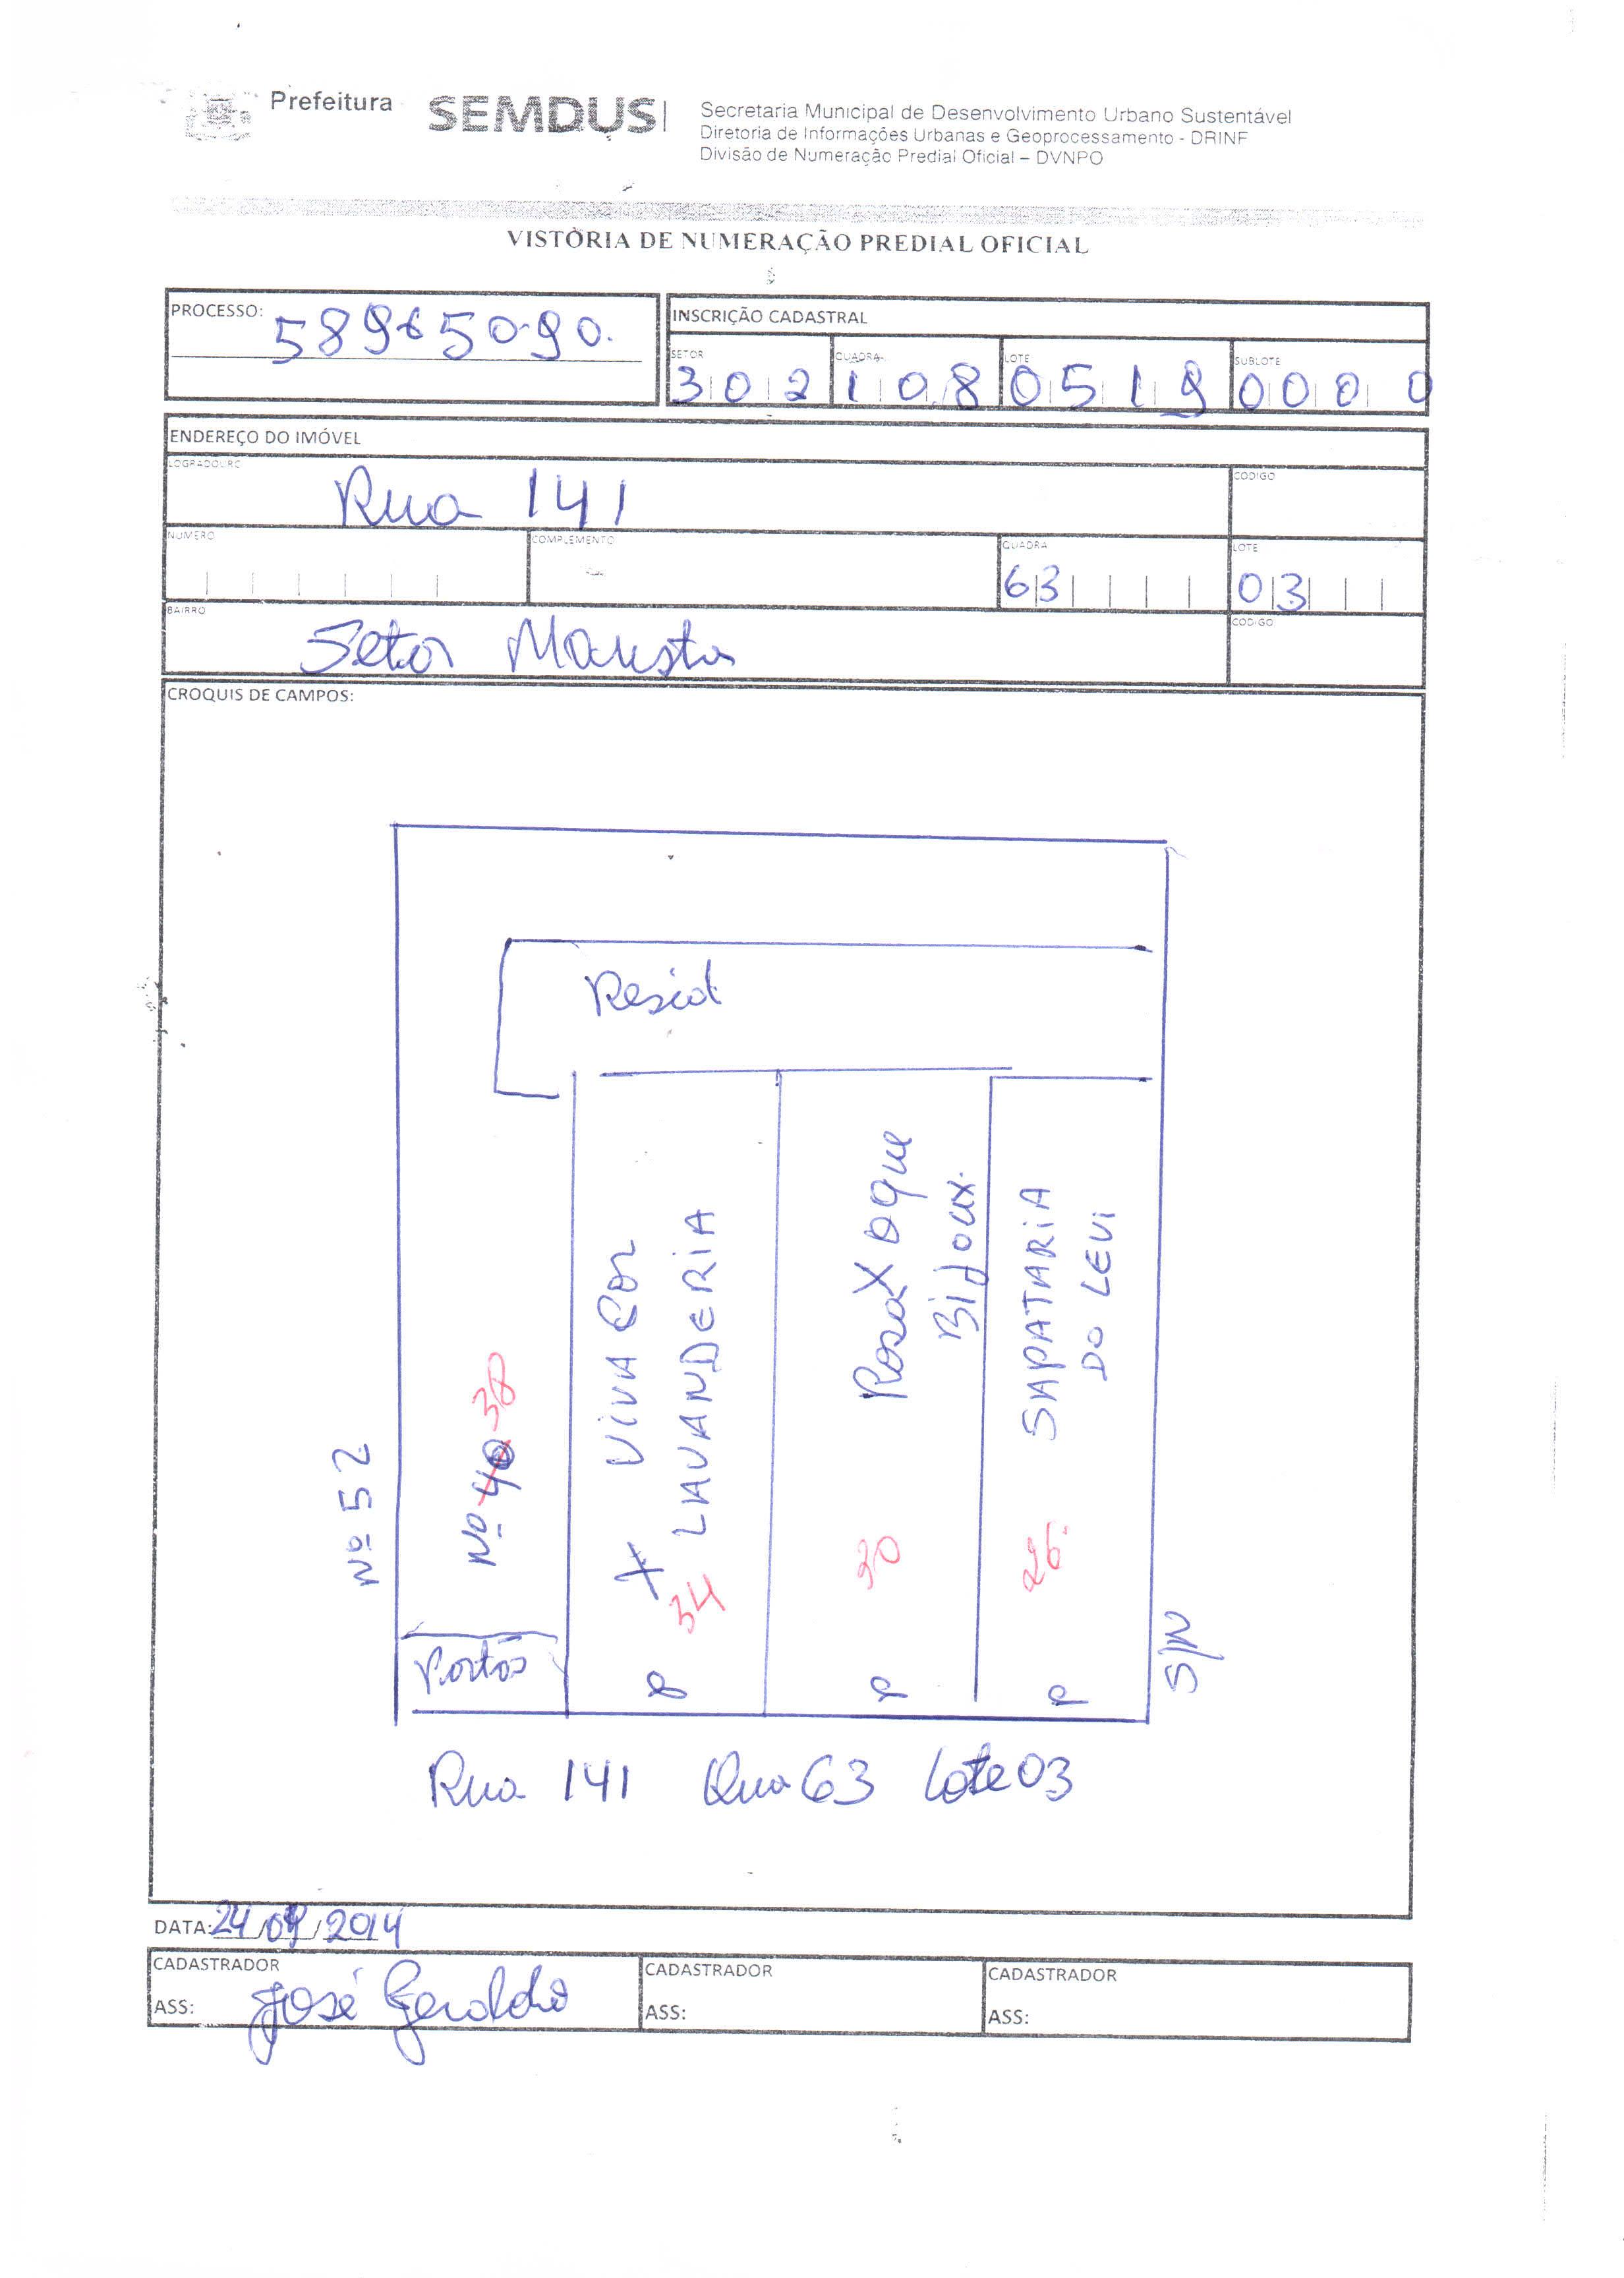 Prefeitura SEMDUS
Secretaria Municipal de Desenvolvimento Urbano Sustentável
Diretoria de Informações Urbanas e Geoprocessamento - DRINF
Divisão de Numeração Predial Oficial – DVNPO
VISTORIA DE NUMERAÇÃO PREDIAL OFICIAL
PROCESSO: 58965090.
INSCRIÇÃO CADASTRAL
SETOR QUADRA LOTE SUBLOTE
302 108 0519 0000
ENDEREÇO DO IMÓVEL
LOGRADOURO CODIGO
Rua 141
NUMERO COMPLEMENTO QUADRA LOTE
63 03
BAIRRO CODIGO
Setor Marista
CROQUIS DE CAMPOS:
Resid
Nº 52
Nº 40 38
VIVA COR
LAVANDERIA
X 34
Rosa XOque
Bijoux.
30
SAPATARIA
DO LEVI
26.
S/N
Portão P P P
Rua 141 Qua 63 Lote 03
DATA: 24/09/2014
CADASTRADOR CADASTRADOR CADASTRADOR
ASS: José Geraldo ASS: ASS: